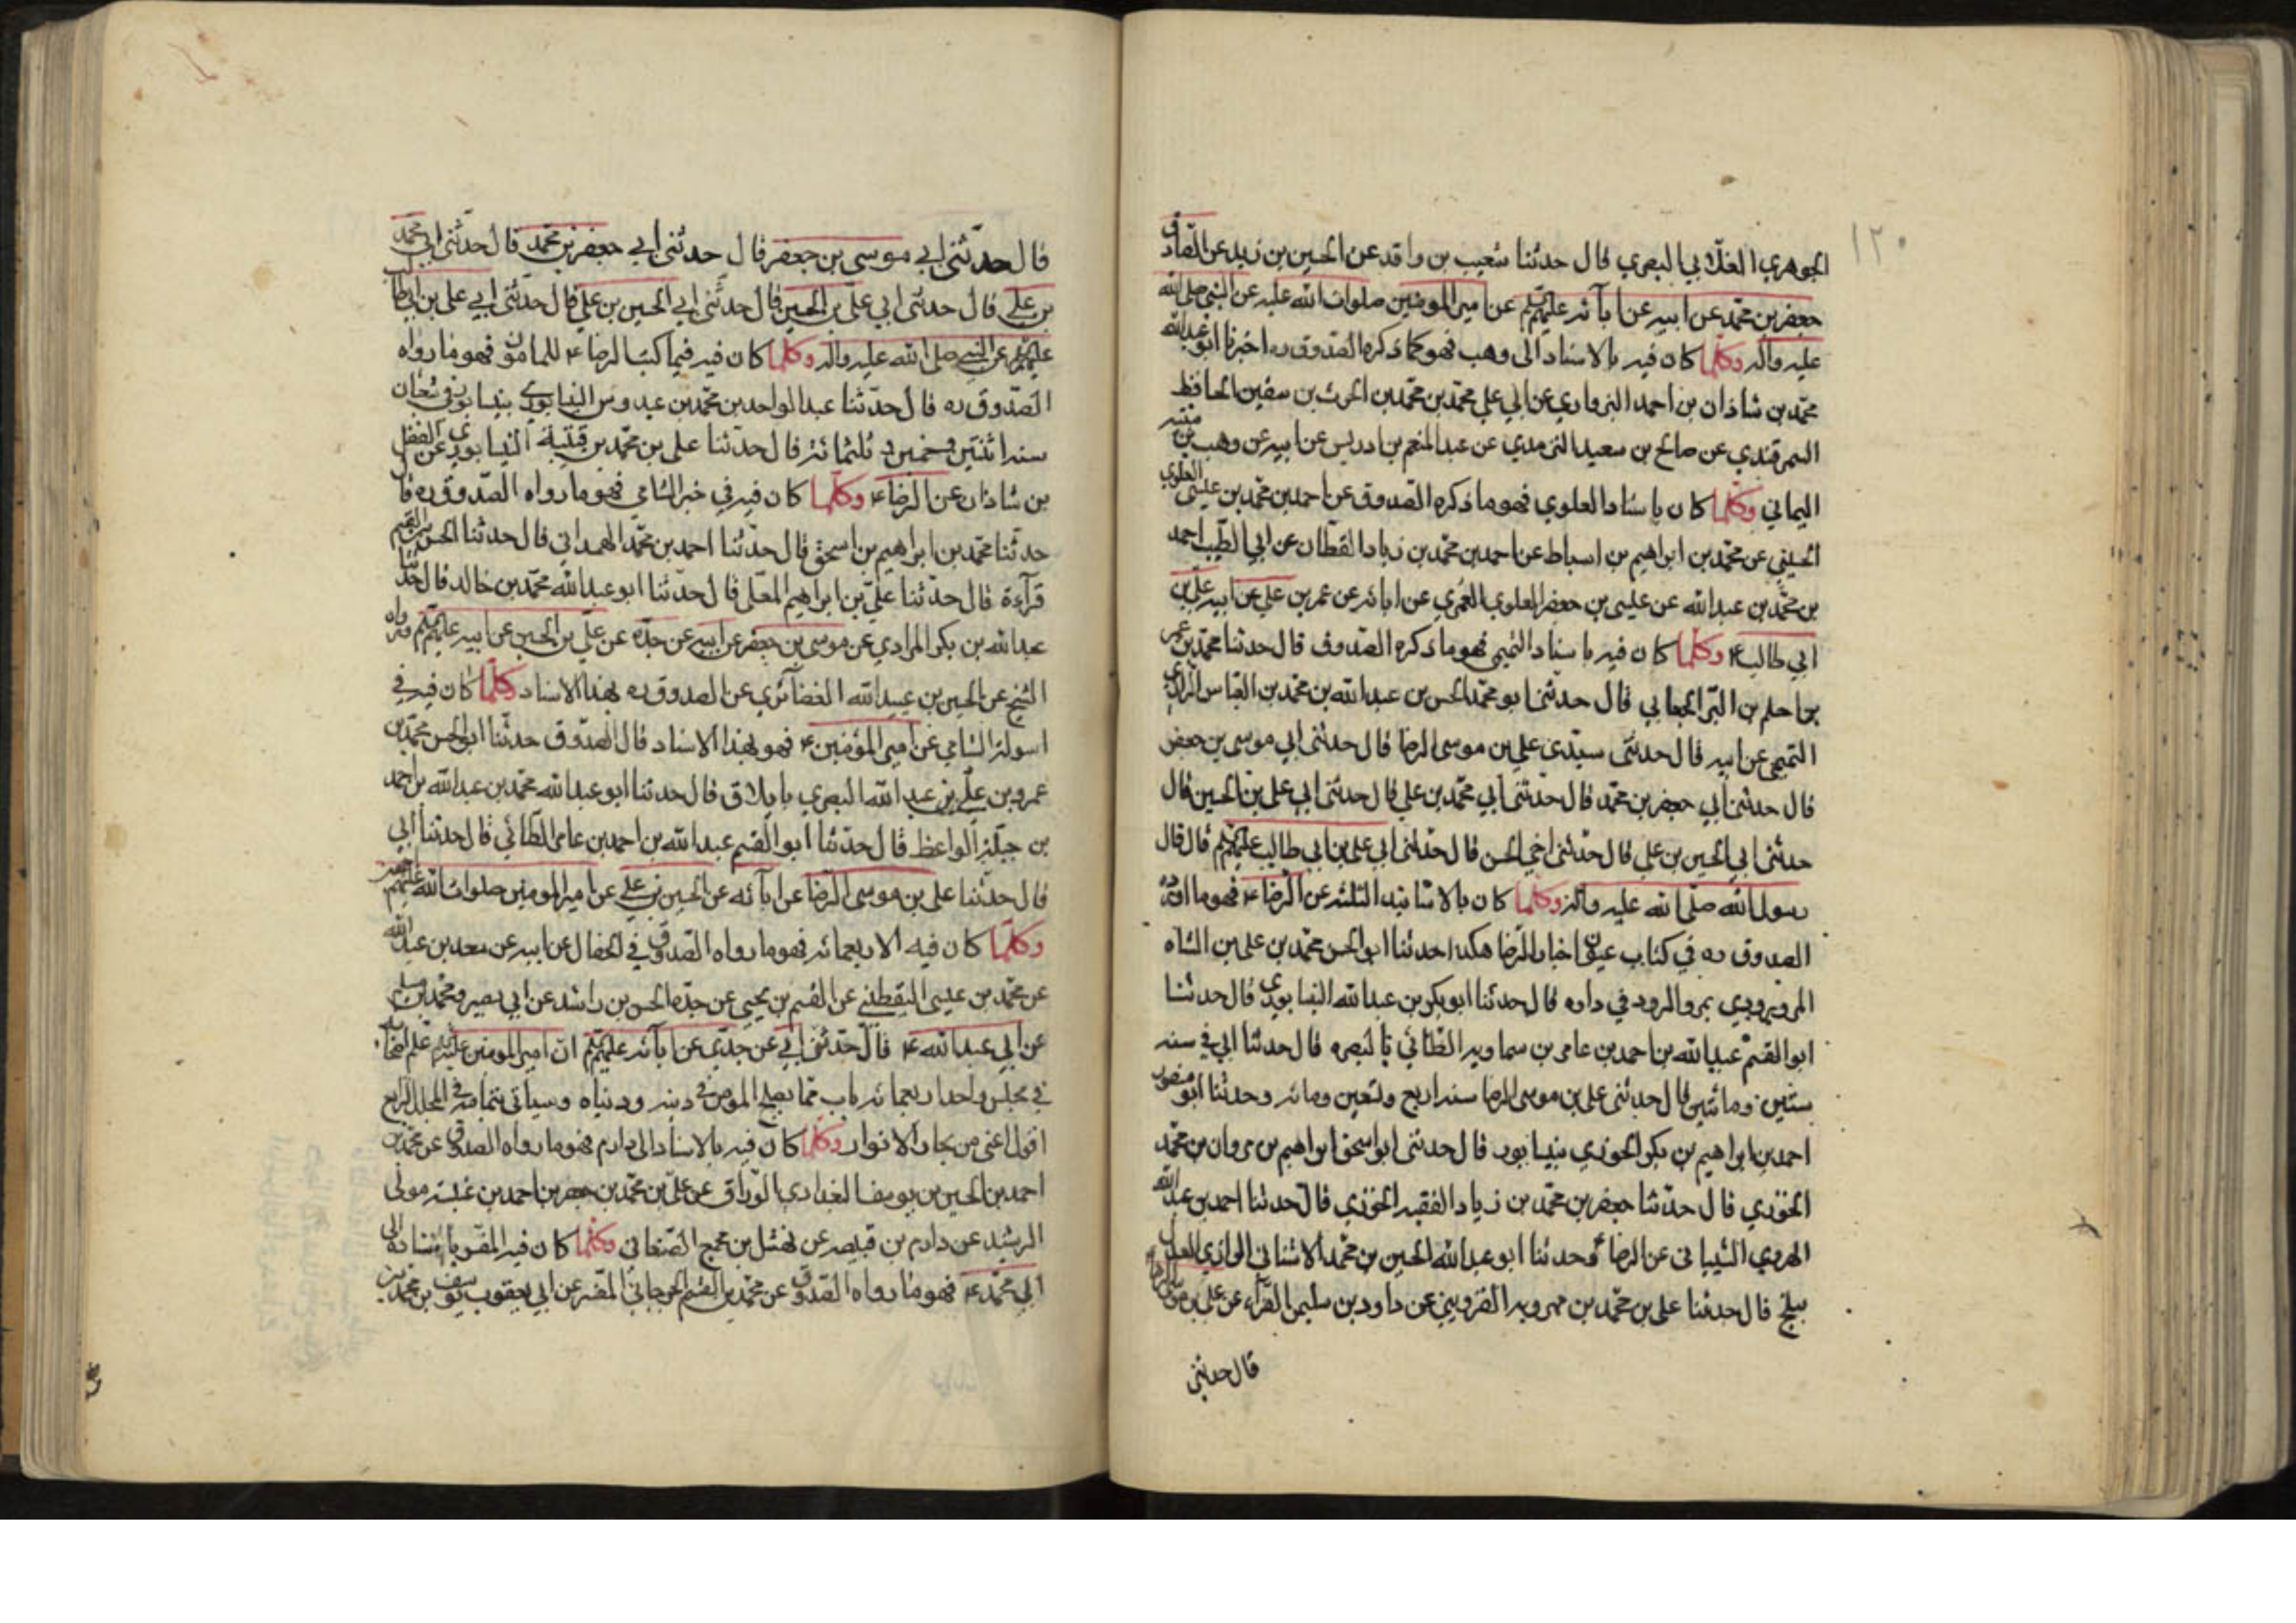 ١٢٠
الجوهري الغلابي البصري قال حدثنا شعيب بن واقد عن الحسين بن زيد عن الصادق
جعفر بن محمد عن ابيه عن آبائه عليهم عن امير المؤمنين صلوات الله عليه عن النبي صلى الله
عليه وآله وكلما كان فيه بالاسناد الى وهب فهو كما ذكره الصدوق ره اخبرنا ابو عبدالله
محمد بن شاذان بن احمد البرواري عن ابي علي محمد بن محمد بن الحرث بن سفين الحافظ
السمرقندي عن صالح بن سعيد الترمدي عن عبد المنعم بن ادريس عن ابيه عن وهب بن منبه
اليماني وكلما كان باسناد العلوي فهو ما ذكره الصدوق عن احمد بن محمد بن عيسى العلوي
الحسيني عن محمد بن ابراهيم بن اسباط عن احمد بن محمد بن زياد القطان عن ابي الطيب احمد
بن محمد بن عبدالله عن عليسى بن جعفر العلوي العمري عن ابائه عن عمر بن علي عن ابيه علي بن
ابي طالب ع وكلما كان فيه باسناد التميمي فهو ما ذكره الصدوق قال حدثنا محمد بن عمر
بن اسلم بن البر الجعابي قال حدثني ابو محمد الحسن بن عبدالله بن محمد بن العباس الرازي
التميمي عن ابيه قال حدثني سيدي علي بن موسى الرضا قال حدثني ابي موسى بن جعفر
قال حدثني ابي جعفر بن محمد قال حدثني ابي محمد بن علي قال حدثني ابي علي بن الحسين قال
حدثني ابي الحسين بن علي قال حدثني اخي الحسن قال حدثني ابي علي بن ابي طالب عليهم قال قال
رسول الله صلى الله عليه وآله وكلما كان بالاسانيد الثلثه عن الرضا ع فهو ما اورده
الصدوق ره في كتاب عيون اخبار الرضا هكذا حدثنا ابو الحسن محمد بن علي بن الشاه
المروروذي بمرو الرود في داره قال حدثنا ابو بكر بن عبدالله النيسابوري قال حدثنا
ابو القسم عبدالله بن احمد بن عامر بن سماويه الطائي بالبصره قال حدثنا ابي في سنه
ستين ومائتين قال حدثني علي بن موسى الرضا سنه اربع وتسعين ومائه وحدثنا ابو منصور
احمد بن ابراهيم بن بكر الخوزي بنيسابور قال حدثني ابو اسحق ابراهيم بن مروان بن محمد
الخوزي قال حدثنا جعفر بن محمد بن زياد الفقيه الخوزي قال حدثنا احمد بن عبدالله
الهروي الشيباني عن الرضا ع وحدثنا ابو عبدالله الحسين بن محمد الاشناني الرازي العدل
ببلخ قال حدثنا علي بن محمد بن مهرويه القزويني عن داود بن سليمن الفراء عن علي بن موسى الرضا
قال حدثني
قال حدثني ابي موسى بن جعفر قال حدثني ابي جعفر بن محمد قال حدثني ابي محمد
بن علي قال حدثني ابي علي بن الحسين قال حدثني ابي الحسين بن علي قال حدثني ابي علي بن ابي طالب
عليهم عن النبي صلى الله عليه وآله وكلما كان فيه فيما كتب الرضا ع للمامون فهو ما رواه
الصدوق ره قال حدثنا عبد الواحد بن محمد بن عبدوس النيسابوري بنيسابور في شعبان
سنه اثنتين وخمسين وثلثمائه قال حدثنا علي بن محمد بن قتيبة النيسابوري عن الفضل
بن شاذان عن الرضا ع وكلما كان فيه في خبر الشامي فهو ما رواه الصدوق ره قال
حدثنا محمد بن ابراهيم بن اسحق قال حدثنا احمد بن محمد الهمداني قال حدثنا الحسن بن القسم
قرآءة قال حدثنا علي بن ابراهيم المعلى قال حدثنا ابو عبدالله محمد بن خالد قال حدثنا
عبدالله بن بكر المرادي عن موسى بن جعفر عن ابيه عن جده عن علي بن الحسين عن ابيه عليهم ورواه
الشيخ عن الحسين بن عبيدالله الغضائري عن الصدوق ره بهذا الاسناد وكلما كان فيه في
اسولة الشامي عن امير المؤمنين ع فهو بهذا الاسناد قال الصدوق حدثنا ابو الحسن محمد بن
عمرو بن علي بن عبد الله البصري بايلاق قال حدثنا ابو عبدالله محمد بن عبدالله بن احمد
بن جبلة الواعظ قال حدثنا ابو القسم عبدالله بن احمد بن عامر الطائي قال حدثنا ابي
قال حدثنا علي بن موسى الرضا عن آبائه عن الحسين بن علي عن امير المومنين صلوات الله عليهم
وكلما كان فيه الاربعمائه فهو ما رواه الصدوق في الخصال عن ابيه عن سعد بن عبدالله
عن محمد بن عيسى اليقطيني عن القسم بن يحيى عن جده الحسن بن راشد عن ابي بصير ومحمد بن مسلم
عن ابي عبدالله ع قال حدثني ابي عن جدي عن آبائه عليهم ان امير المومنين علم اصحابه
في مجلس واحد اربعمائه باب مما يصلح المومن في دينه ودنياه وسياتي بتمامه في المجلد الرابع
اقول اعني من بحار الانوار وكلما كان فيه بالاسناد الى دارم فهو ما رواه الصدوق عن محمد بن
احمد بن الحسين بن يوسف البغدادي الوراق عن علي بن محمد بن جعفر بن احمد بن عنبسه مولى
الرشيد عن دارم بن قبيصه عن نهشل بن مجمع الصنعاني وكلما كان فيه المفسر باسناده الى
ابي محمد ع فهو ما رواه الصدوق عن محمد بن القسم الجرجاني المفسر عن ابي يعقوب يوسف بن محمد بن